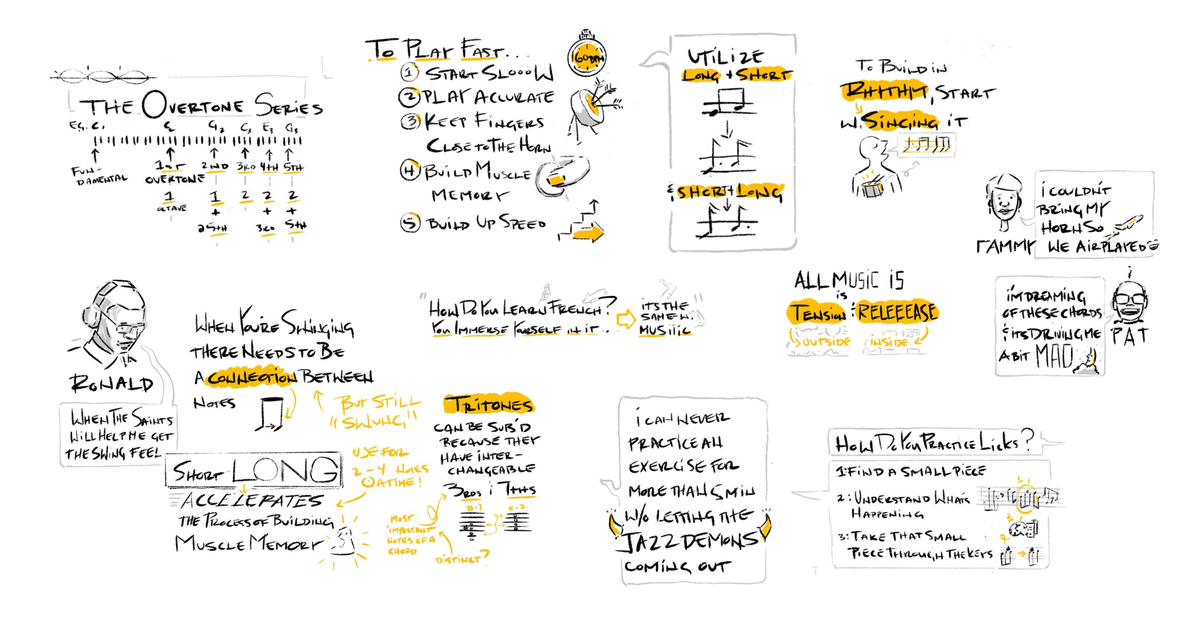 THE OVERTONE SERIES
EG. C1 C2 G2 C3 E3 G3
FUNDAMENTAL
1ST 2ND 3RD 4TH 5TH
OVERTONE
1 1 2 2 2
OCTAVE + + +
5TH 3RD 5TH
TO PLAY FAST...
60BPM
1 START SLOOOW
2 PLAY ACCURATE
3 KEEP FINGERS
CLOSE TO THE HORN
4 BUILD MUSCLE
MEMORY
5 BUILD UP SPEED
UTILIZE
LONG + SHORT
& SHORT + LONG
TO BUILD IN
RHYTHM, START
W. SINGING IT
TAMMY
I COULDN'T
BRING MY
HORN SO
WE AIRPLAYED
RONALD
WHEN THE SAINTS
WILL HELP ME GET
THE SWING FEEL
WHEN YOU'RE SWINGING
THERE NEEDS TO BE
A CONNECTION BETWEEN
NOTES
BUT STILL
"SWUNG"
"HOW DO YOU LEARN FRENCH?
YOU IMMERSE YOURSELF IN IT..
IT'S THE
SAME W.
MUSIIIC"
ALL MUSIC IS
TENSION & RELEEEASE
OUTSIDE INSIDE
I'M DREAMING
OF THESE CHORDS
& ITS DRIVING ME
A BIT MAD
PAT
SHORT LONG
ACCELERATES
THE PROCESS OF BUILDING
MUSCLE MEMORY
USE FOR
2-4 NOTES
@ A TIME!
TRITONES
CAN BE SUB'D
BECAUSE THEY
HAVE INTER-
CHANGEABLE
3RDS & 7THS
MOST
IMPORTANT
NOTES OF A
CHORD
DISTINCT?
I CAN NEVER
PRACTICE AN
EXERCISE FOR
MORE THAN 5 MIN
W/O LETTING THE
JAZZ DEMONS
COMING OUT
HOW DO YOU PRACTICE LICKS?
1: FIND A SMALL PIECE
2: UNDERSTAND WHATS
HAPPENING
3: TAKE THAT SMALL
PIECE THROUGH THE KEYS